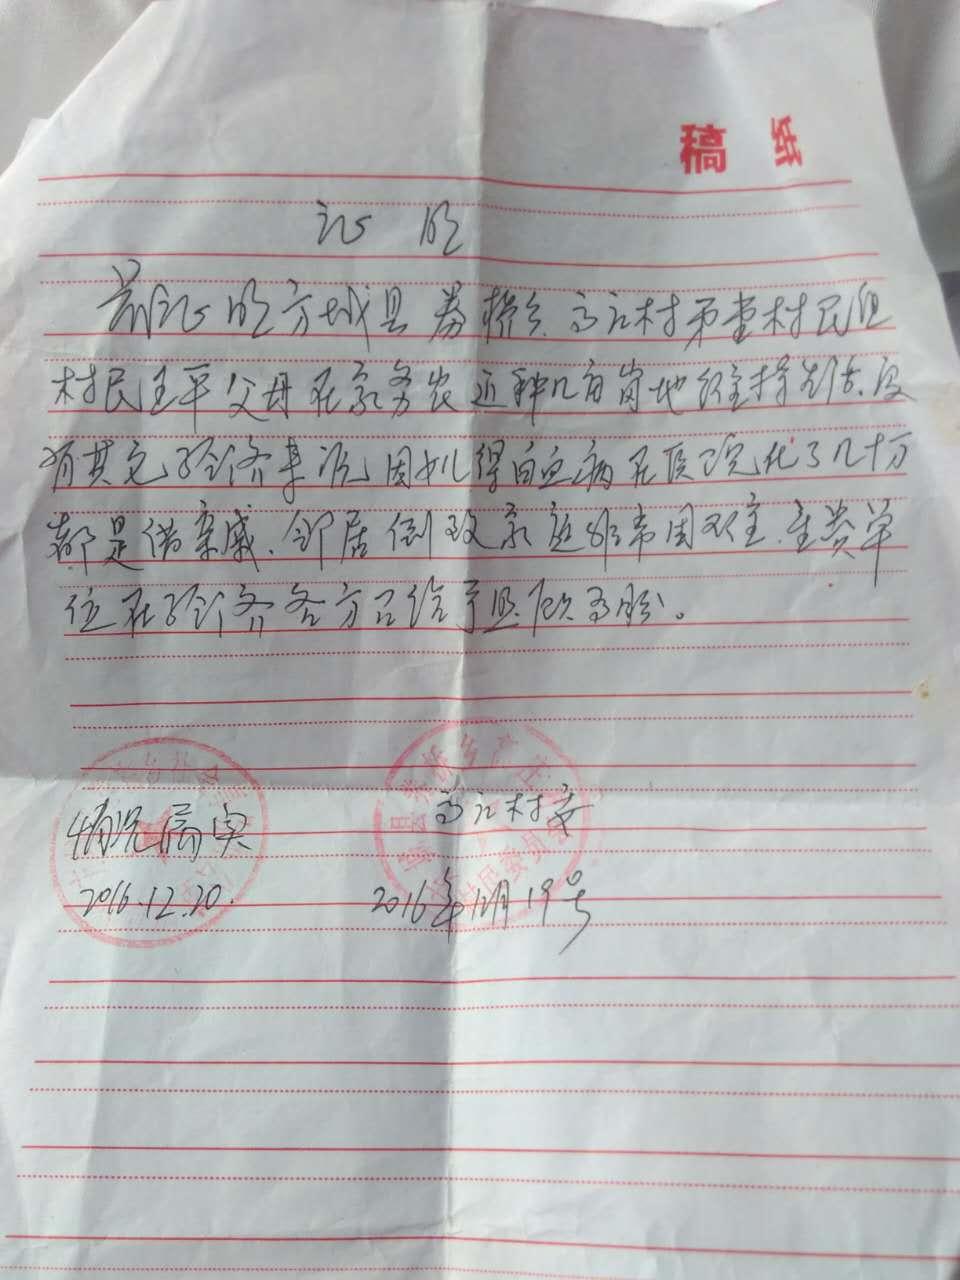 稿纸
证明
兹证明方城县券桥乡高庄村第 村民组
村民王平父母在家务农近种几亩岗地维持生活.没
有其它经济来源因女儿得白血病在医院花了几十万
都是借亲戚.邻居倒致家庭非常困难.望贵单
位在经济各方 给予照顾为盼。
情况属实
高庄村委
2016.12.20.
2016年12月19号